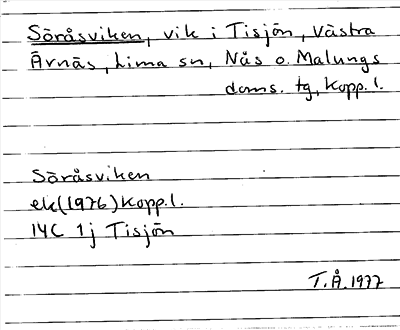 Söråsviken, vik i Tisjön, Västra
Ärnäs, Lima sn, Nås o. Malungs
doms. tg, Kopp. l.
Söråsviken
ek(1976)Kopp.l.
14C 1j Tisjön
T.Å.1977